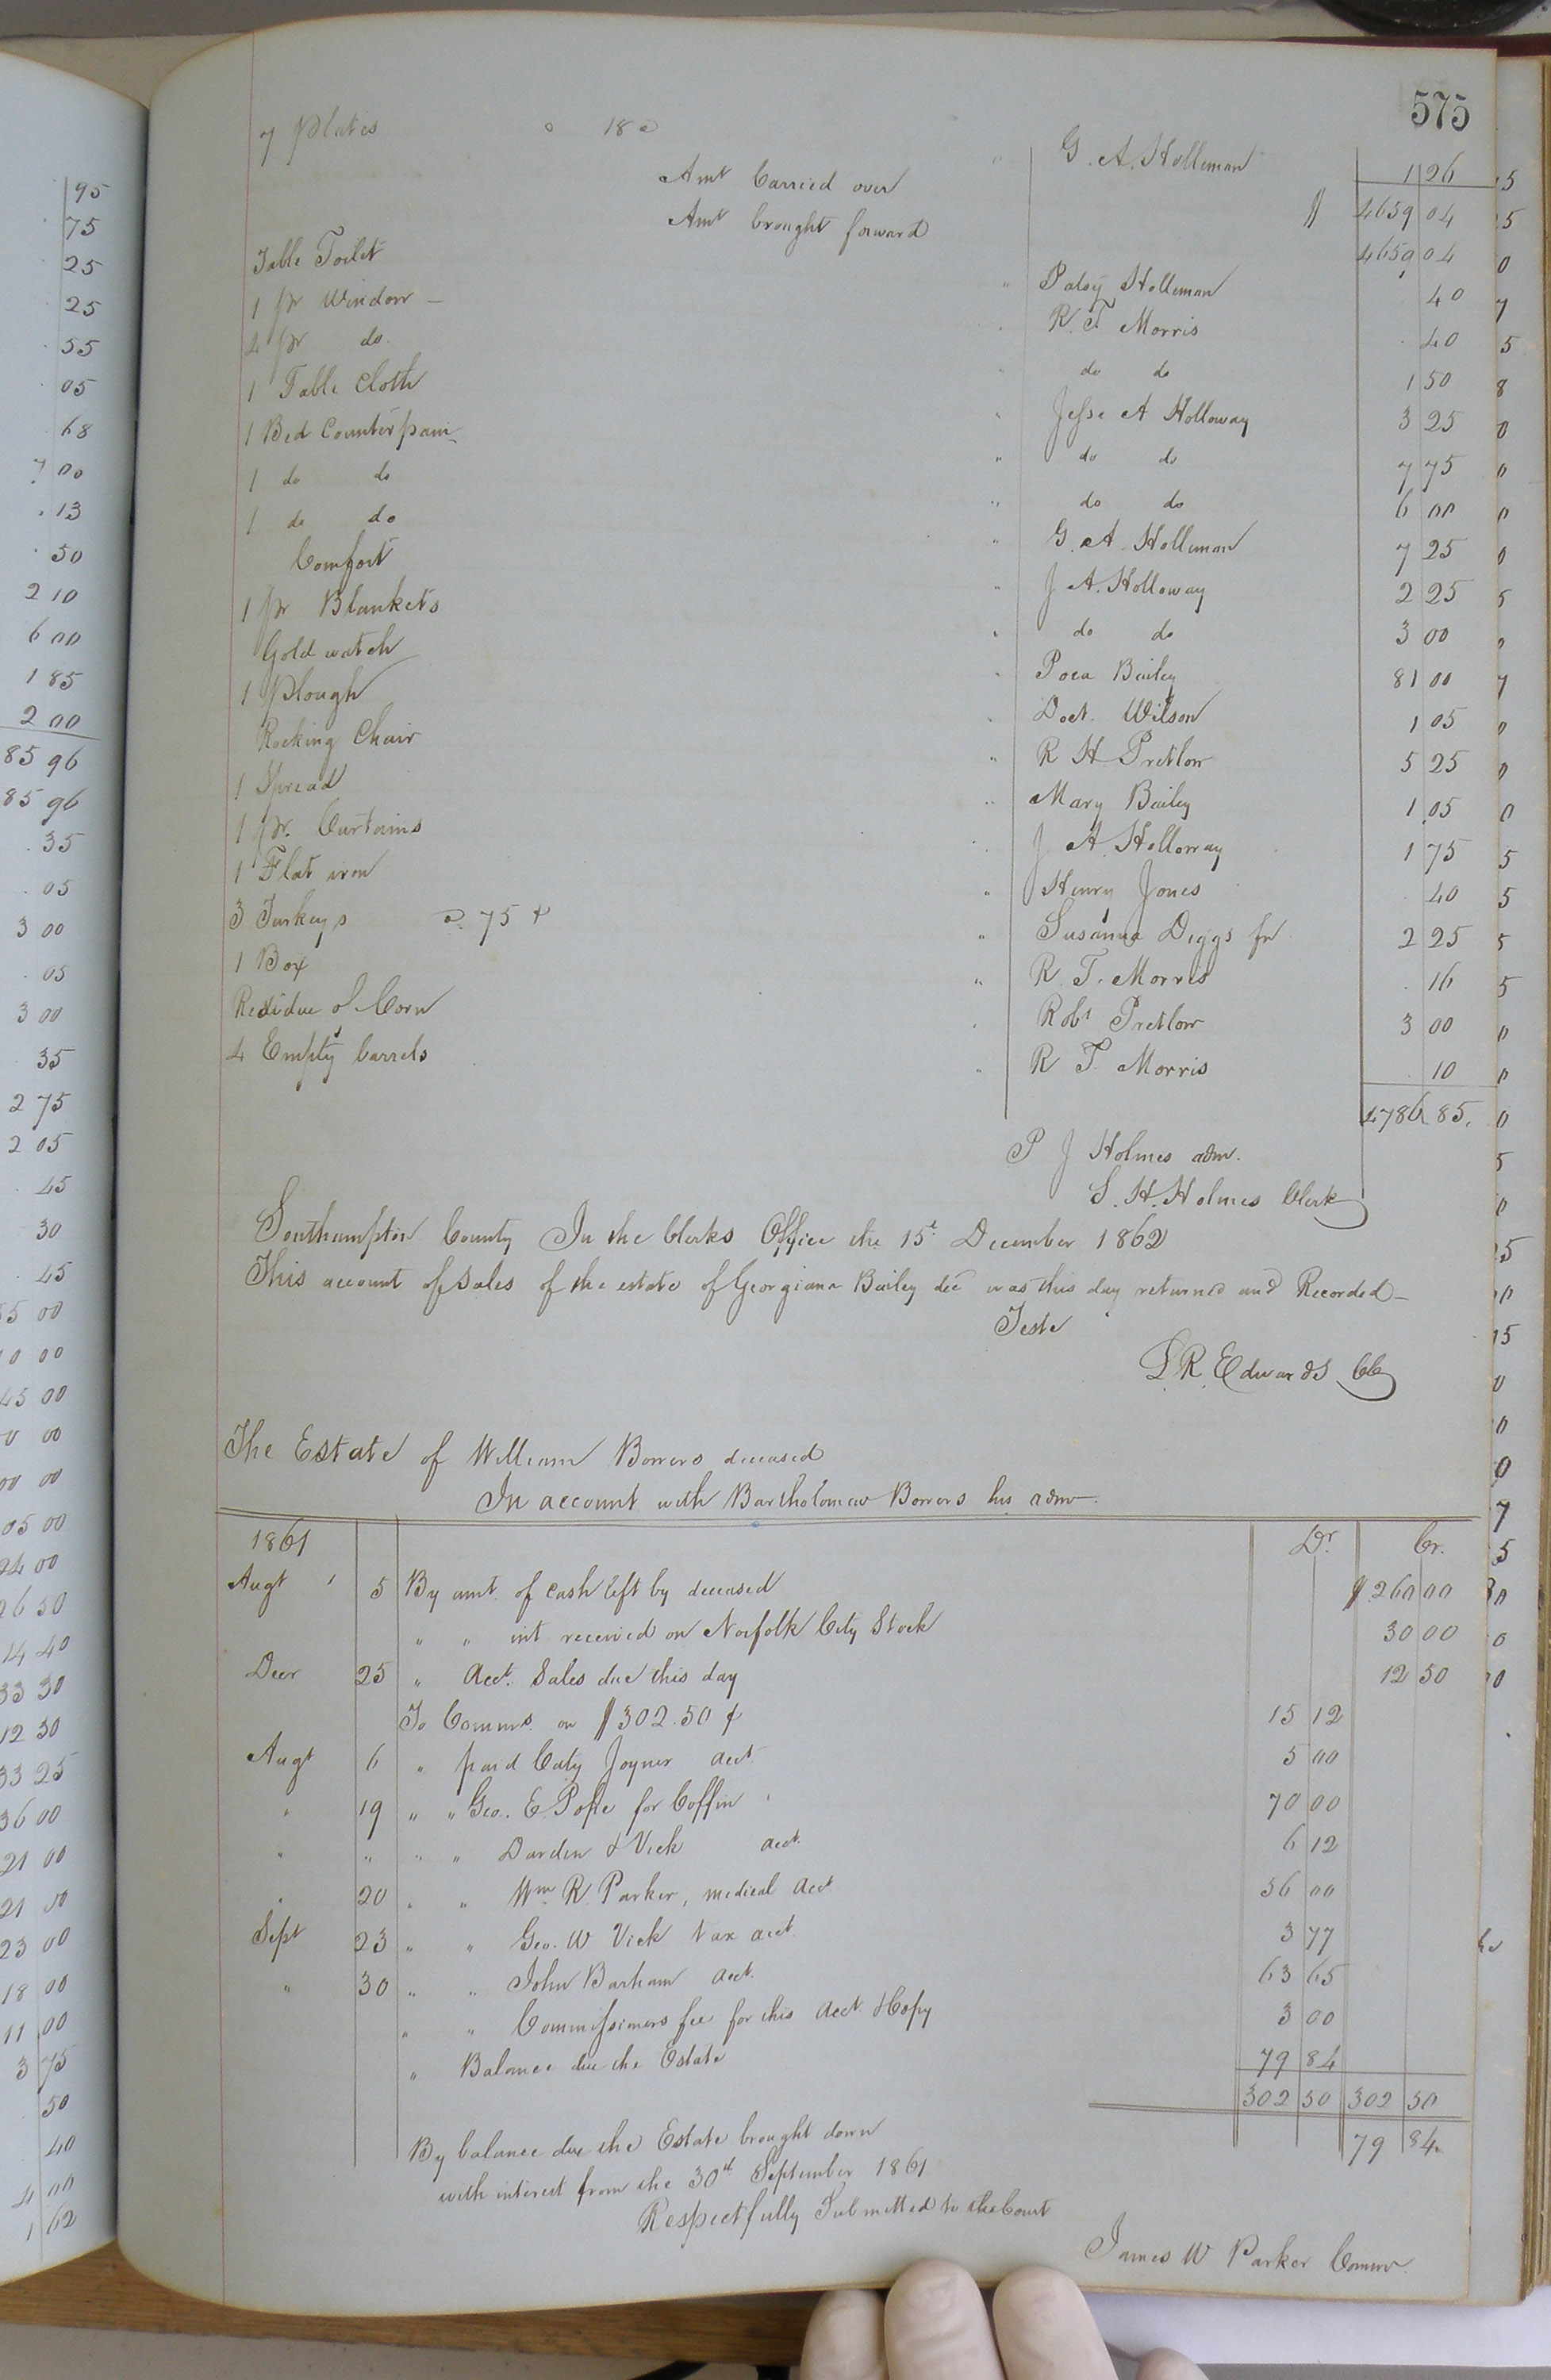 95
75
25
25
55
05
68
7 00
13
50
2 10
6 00
1 85
2 00
85 96
85 96
35
05
3 00
05
3 00
35
2 75
2 05
45
30
45
5 00
0 00
45 00
0 00
00 00
05 00
24 00
26 50
14 40
33 30
12 30
33 25
36 00
21 00
21 00
23 00
18 00
11 00
3 75
50
40
4 00
1 62
575
7 Plates @ 18 " G. A. Holleman 1 26
Amt Carried over $ 4659 04
Amt brought forward 4659 04
Table Toilet " Patsy Holleman 40
1 pr Window " R. T. Morris 40
4 pr do " do do 1 50
1 Table Cloth " Jesse A Holloway 3 25
1 Bed Counterpain " do do 7 75
1 do do " do do 6 00
1 do do " G. A. Holleman 7 25
Comfort " J A. Holloway 2 25
1 pr Blankets " do do 3 00
Gold watch " Poca Bailey 81 00
1 Plough " Doct. Wilson 1 05
Rocking Chair " R H Pretlow 5 25
1 Spread " Mary Bailey 1 05
1 pr. Curtains " J A. Holloway 1 75
1 Flat iron " Henry Jones 40
3 Turkeys @ 75 ¢ " Susanna Diggs fn 2 25
1 Box " R. T. Morris 16
Residue of Corn " Robt Pretlow 3 00
4 Empty barrels " R T. Morris 10
4786 85.
P J Holmes adm.
S. H. Holmes Clerk
Southampton County In the Clerks Office the 15t December 1862
This account of sales of the estate of Georgiana Bailey dec was this day returned and Recorded
Teste
L R. Edwards CC
The Estate of William Bowers deceased
In account with Bartholomew Bowers his adm
1861 Dr Cr.
Augt 5 By amt. of cash left by deceased $ 260 00
" " int received on Norfolk City Stock 30 00
Decr 25 " Acct. Sales due this day 12 50
To Comms. on $302.50 ¢ 15 12
Augt 6 " paid Caty Joyner acct 5 00
" 19 " " Geo. E. Pope for Coffin 70 00
" " " " Darden & Vick acct. 6 12
" 20 " " Wm R. Parker, medical Acct 56 00
Sept 23 " " Geo. W Vick tax acct 3 77
" 30 " " John Barham acct. 63 65
" " Commissioners fee for this acct & Copy 3 00
" Balance due the Estate 79 84
302 50 302 50
By balance due the Estate brought down 79 84
with interest from the 30th September 1861
Respectfully Submitted to the Court
James W Parker Commr